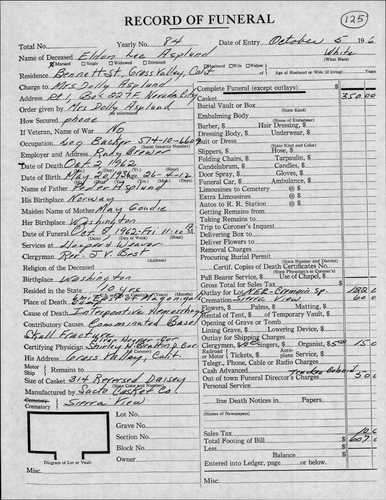 RECORD OF FUNERAL
125
Total No. Yearly No. 84 Date of Entry October 5 196
Name of Deceased Elton Lee Asplund White
(What Race)
Married Single Widowed Divorced Husband Wife Widow
Residence Bennett St. Grass Valley, Calif of Age of Husband or Wife (if living) Years
Charge to Mrs Dolly Asplund Complete Funeral (except outlays) $
Address Rt. 1, Box 227E Nevada City Casket 350.00
Order given by Mrs Dolly Asplund Burial Vault or Box
(State Kind)
How Secured phone Embalming Body
(Name of Embalmer)
If Veteran, of War No Barber, $ Hair Dressing, $
Dressing Body, $ Underwear, $
Occupation 574-10-6609 Suit or Dress
(Social Security Number) (State Kind and Color)
Employer and Slippers, $ Hose, $
Date of Death Oct 2 1962 Folding Chairs, $ Tarpaulin, $
Candelabrum, $ Candles, $
Date of Birth May 20, 1936 Age 26-4-12 Door Spray, $ Gloves, $
Name of Father Asplund Funeral Car, $ Ambulance, $
Limousines to Cemetery @ $
His Birthplace Norway Extra Limousines @ $
Autos to R. R. Station @ $
Maiden Name of Mother May Goudie Getting Remains from
Her Birthplace Washington Taking Remains to
Trip to Coroner's Inquest
Date of Funeral Oct 5 1962-Fri 11:00 A Delivering Box to
Services at Hooper & Weaver Deliver Flowers to
Removal Charges
Clergyman Rev. J V. Procuring Burial Permit
(State Number and District)
Religion of the Deceased Certif. Copies of Death Certificates No.
(State Permission's or Coroner's)
Birthplace Washington Pall Bearer Service, $ Use of Chapel, $
Gross Total for Sales Tax $
Resided in the State 10 yrs Outlay for Lot
Place of Death Cremation-Sierra View 60
Flowers, $ Palms, $ Matting, $
Cause of Death Rental of Tent, $ of Temporary Vault, $
Opening of Grave or Tomb
Contributory Causes Comminuted Basal Lining Grave, $ Lowering Device, $
Skull Fracture Outlay for Shipping Charges
Certifying Physician Clergymen, $ Singers, $ Organist, $
Railroad or Motor Tickets, $ Aeroplane Service, $
His Address Grass Valley, Calif. Telegr., Phone, Cable or Radio Charges
Motor
Ship Remains to Cash Advanced
Size of Casket Daisey Out of town Funeral Director's Charges
(State Color and Number)
Manufactured by Sacto Casket Co Personal Service
Crematory Sierra View line Death Notices in Papers
(Names of Newspapers)
Lot No.
Grave No.
Section No. Sales Tax
Block No. Total Footing of Bill $ 607
Less
Owner Balance $
Diagram of Lot or Vault Entered into Ledger, page or below.
Misc. Misc.